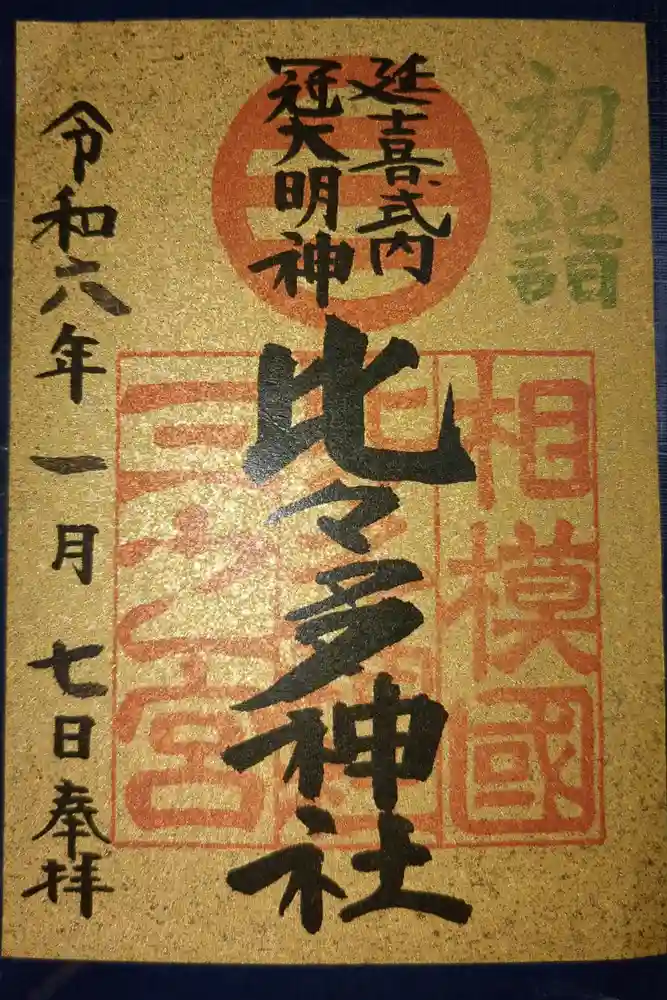 初詣
延喜式内
冠大明神
三
相模國
比々多神社
三之宮
令和六年一月七日奉拝